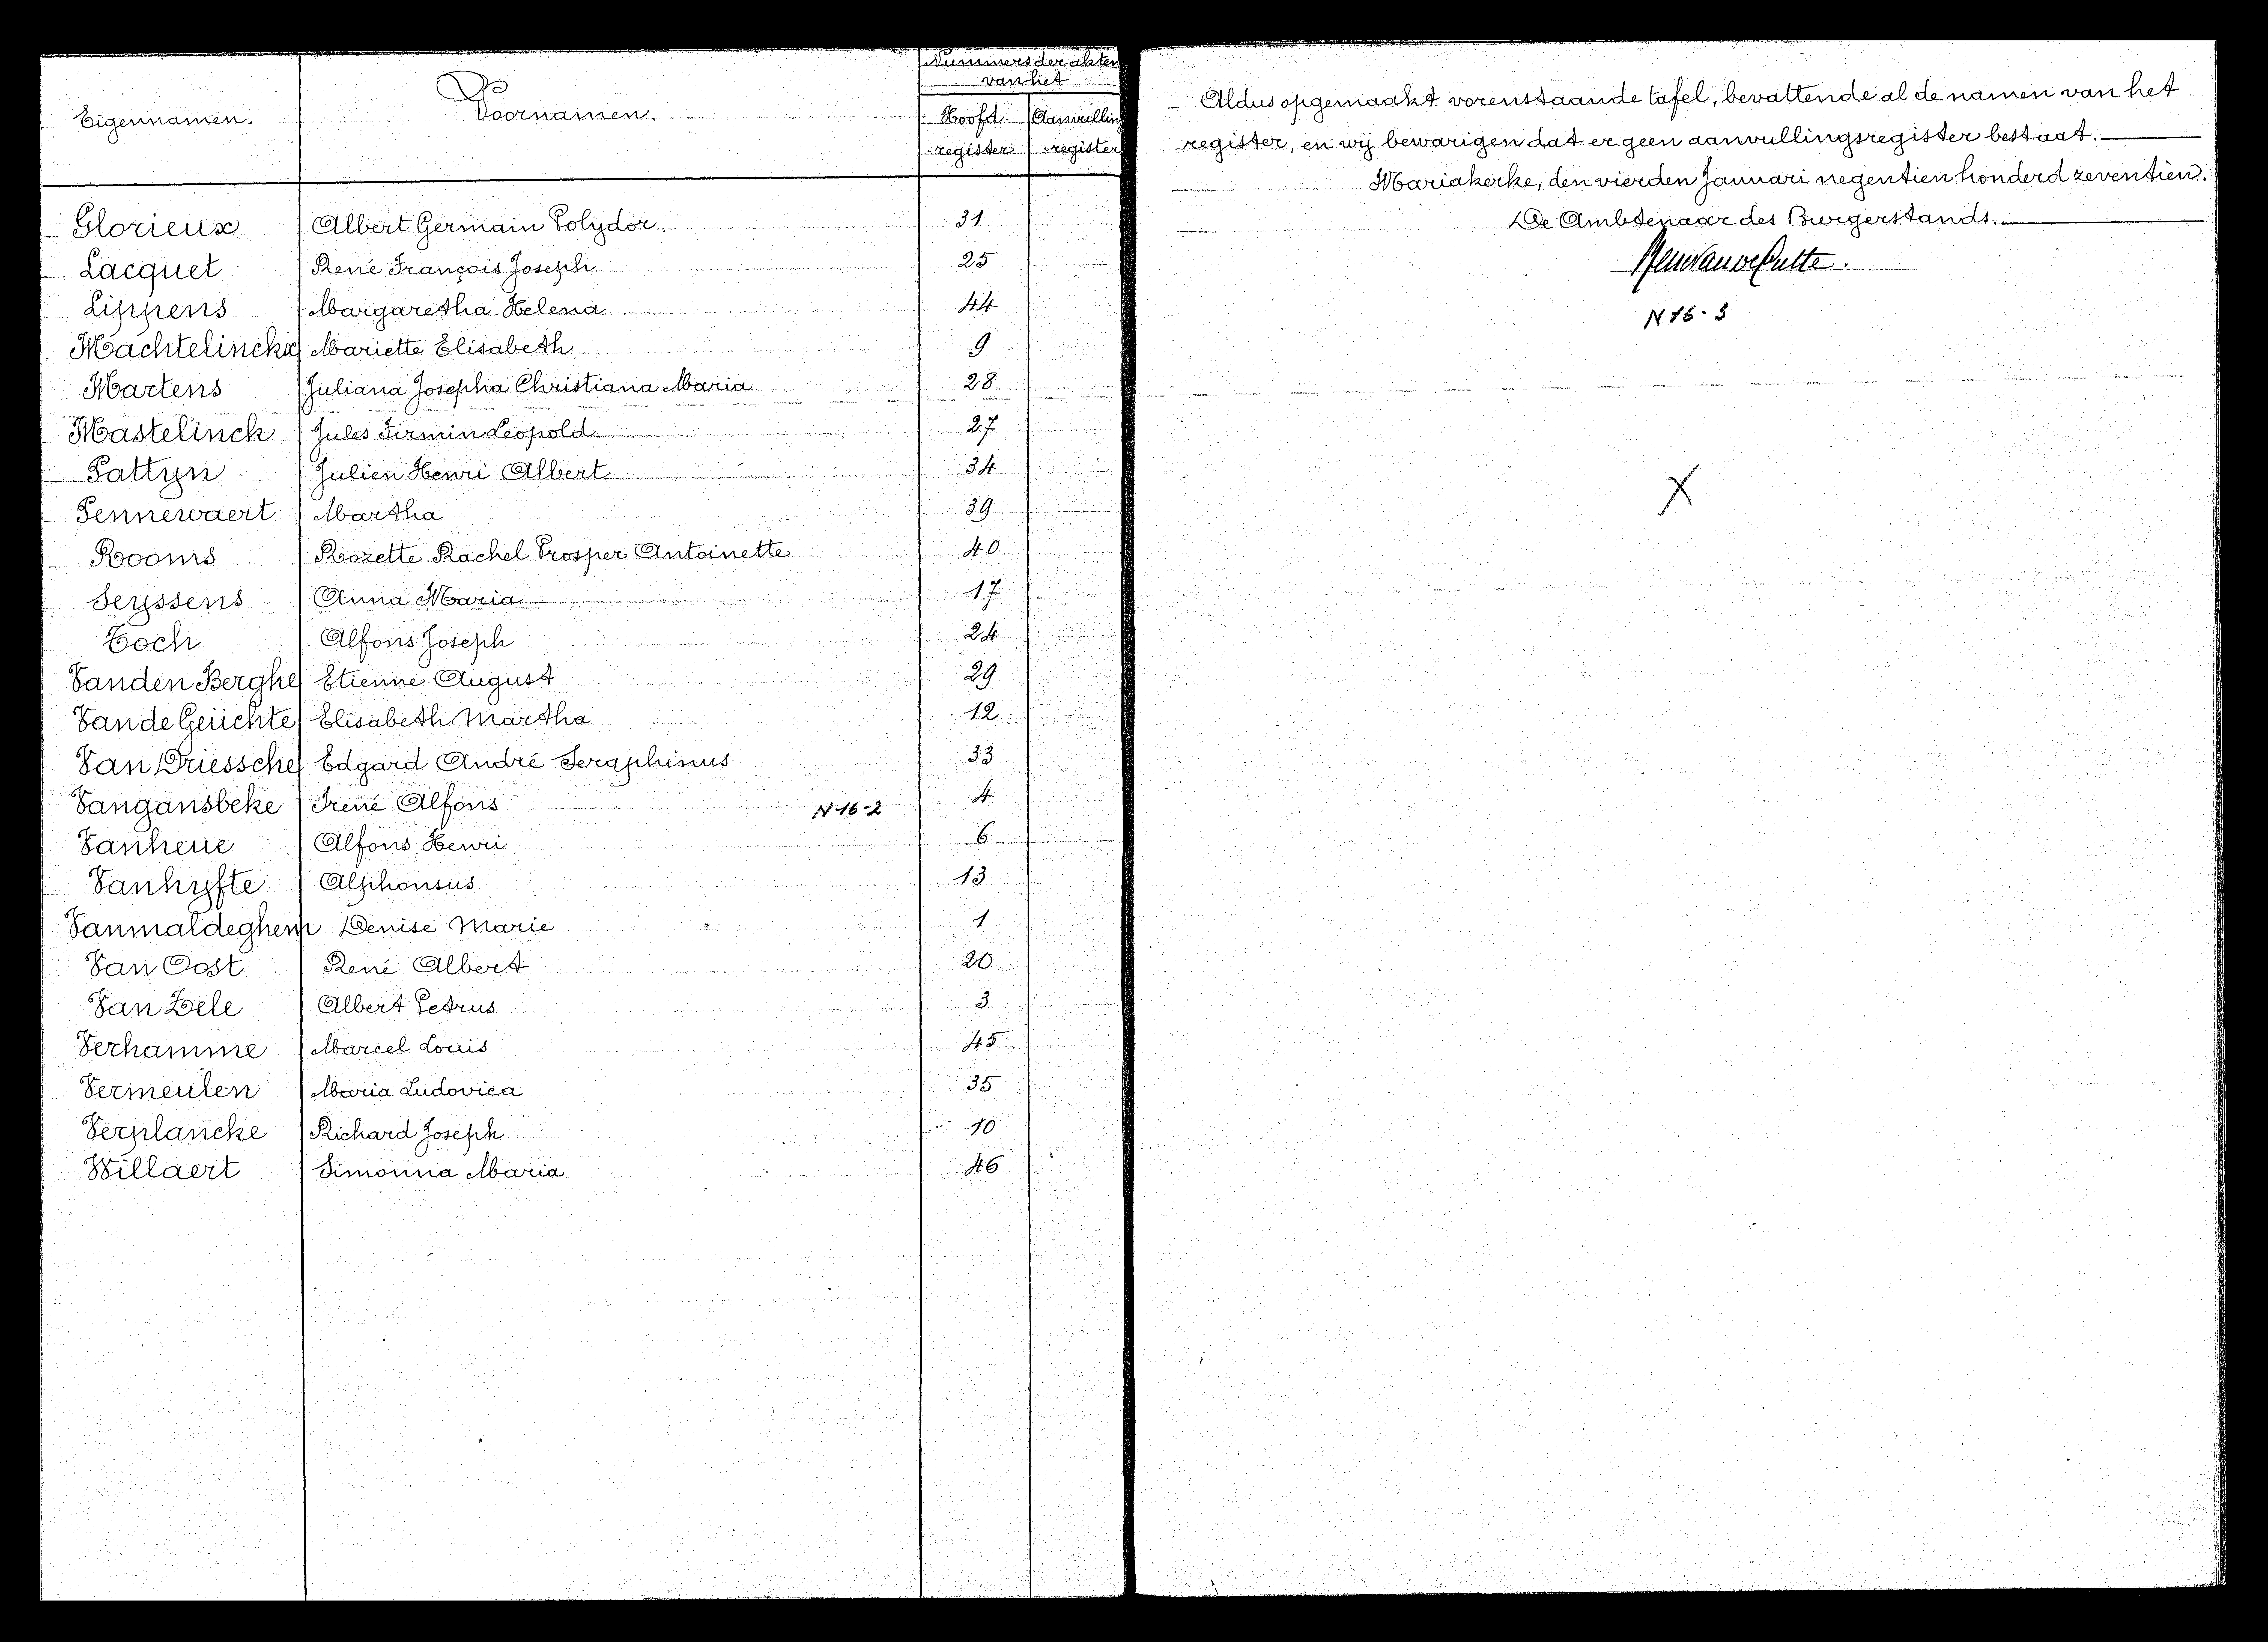 Eigennamen. Voornamen. Nummers der akten
van het
Hoofd- Aanvulling
register register
Glorieux Albert Germain Polydor 31
Lacquet René François Joseph 25
Lippens Margaretha Helena 44
Machtelinckx Mariette Elisabeth 9
Martens Juliana Josepha Christiana Maria 28
Mastelinck Jules Firmin Leopold 27
Pattyn Julien Henri Albert 34
Pennewaert Martha 39
Rooms Rozette Rachel Prosper Antoinette 40
Seyssens Anna Maria 17
Toch Alfons Joseph 24
Vanden Berghe Etienne August 29
Van de Geüchte Elisabeth Martha 12
Van Driessche Edgard André Seraphinus 33
Vangansbeke Irené Alfons N 16-2 4
Vanheue Alfons Henri 6
Vanhyfte Alphonsus 13
Vanmaldeghem Denise Marie 1
Van Oost René Albert 20
Van Zele Albert Petrus 3
Verhamme Marcel Louis 45
Vermeulen Maria Ludovica 35
Verplancke Richard Joseph 10
Willaert Simonna Maria 46
Aldus opgemaakt vorenstaande tafel, bevattende al de namen van het
register, en wij bewarigen dat er geen aanvullingsregister bestaat.
Mariakerke, den vierden Januari negentien honderd zeventien.
De Ambtenaar des Burgerstands.
N 16-3
X